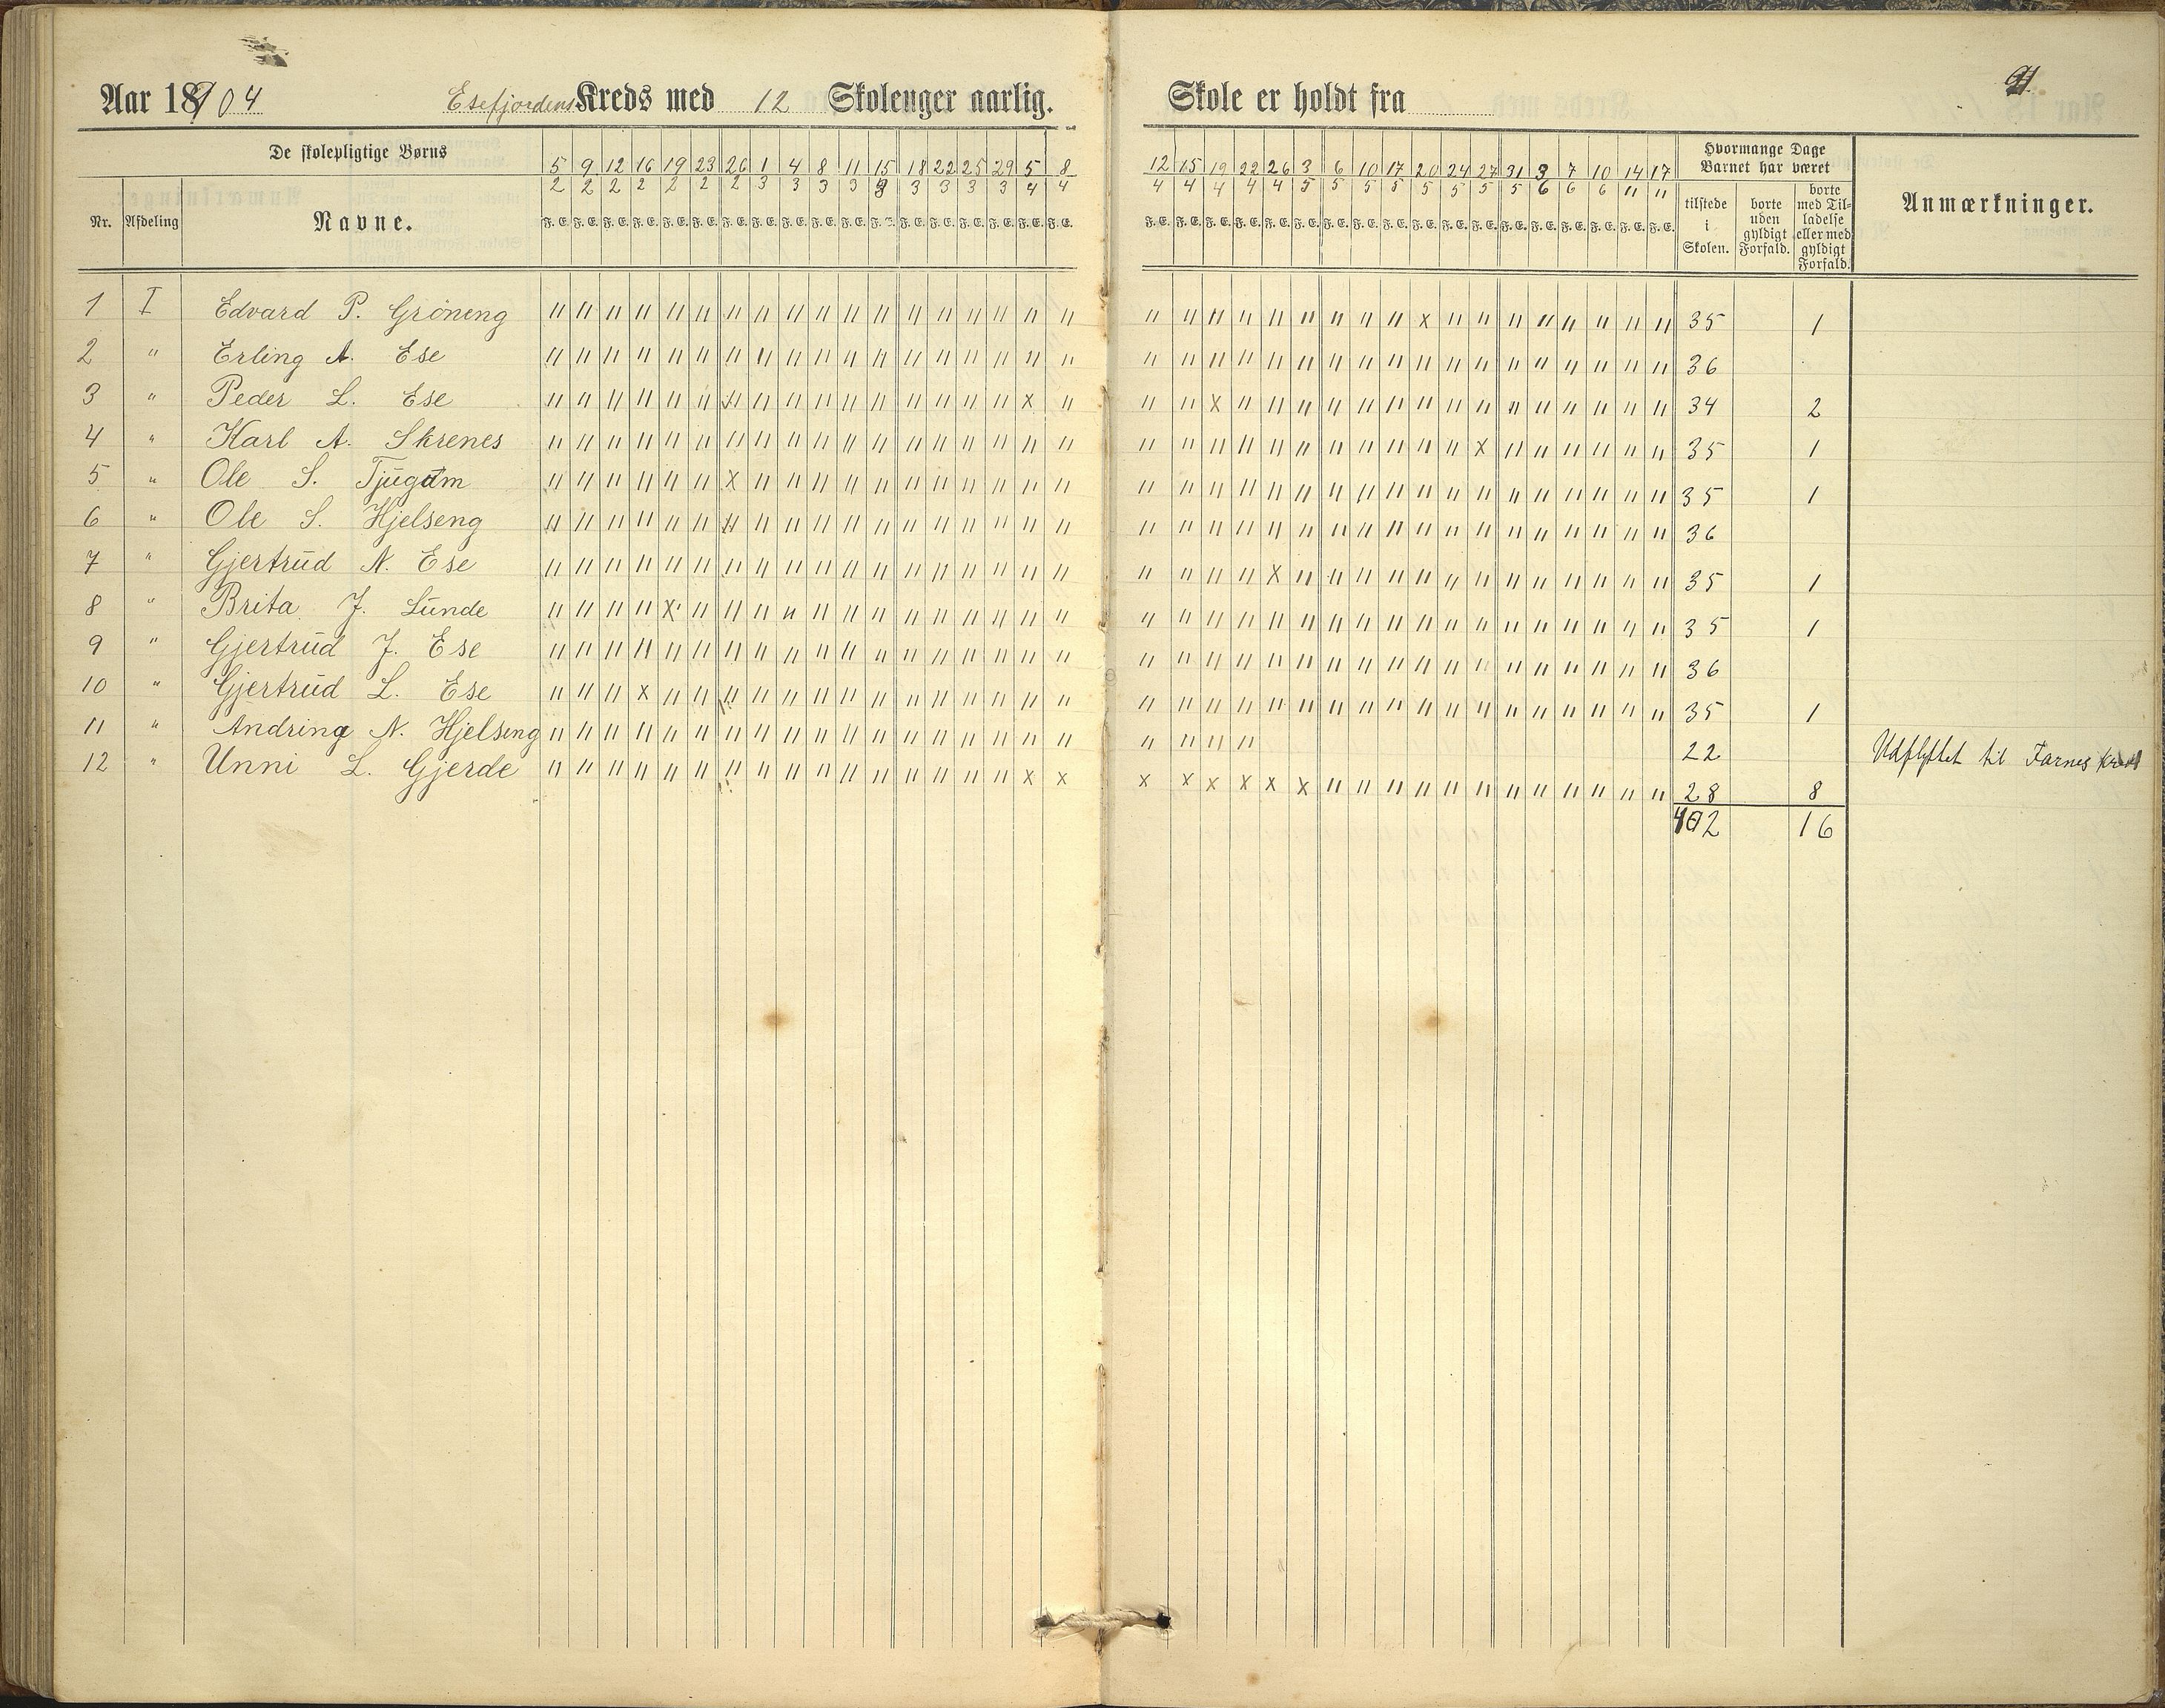 Aar 1904 Esefjordens Kreds med 12 Skoleuger aarlig. Skole er holdt fra
De skolepligtige Børns 5 9 12 16 19 23 26 1 4 8 11 15 18 22 25 29 5 8 12 15 19 22 26 3 6 10 17 20 24 27 31 3 7 10 14 17 Hvormange Dage Barnet har været
2 2 2 2 2 2 2 3 3 3 3 3 3 3 3 3 4 4 4 4 4 4 4 5 5 5 5 5 5 5 5 6 6 6 11 11
Nr. Afdeling Navne. F. E. F. E. F. E. F. E. F. E. F. E. F. E. F. E. F. E. F. E. F. E. F. E. F. E. F. E. F. E. F. E. F. E. F. E. F. E. F. E. F. E. F. E. F. E. F. E. F. E. F. E. F. E. F. E. F. E. F. E. F. E. F. E. F. E. F. E. F. E. F. E. tilstede i Skolen. borte uden gyldigt Forfald. borte med Tilladelse eller med gyldigt Forfald. Anmærkninger.
1 I Edvard P. Gröneng " " " " " " " " " " " " " " " " " " " " " " " " " " " x " " " " " " " " 35 1
2 " Erling A. Ese " " " " " " " " " " " " " " " " " " " " " " " " " " " " " " " " " " " " 36
3 " Peder L. Ese " " " " " " " " " " " " " " " " x " " " x " " " " " " " " " " " " " " " 34 2
4 " Karl A. Skrenes " " " " " " " " " " " " " " " " " " " " " " " " " " " " " x " " " " " " 35 1
5 " Ole S. Tjugum " " " " " " x " " " " " " " " " " " " " " " " " " " " " " " " " " " " " 35 1
6 " Ole S. Hjelseng " " " " " " " " " " " " " " " " " " " " " " " " " " " " " " " " " " " " 36
7 " Gjertrud N. Ese " " " " " " " " " " " " " " " " " " " " " " x " " " " " " " " " " " " " 35 1
8 " Brita J. Lunde " " " " x " " " " " " " " " " " " " " " " " " " " " " " " " " " " " " " 35 1
9 " Gjertrud J. Ese " " " " " " " " " " " " " " " " " " " " " " " " " " " " " " " " " " " " 36
10 " Gjertrud L. Ese " " " x " " " " " " " " " " " " " " " " " " " " " " " " " " " " " " " " 35 1
11 " Andrina N. Hjelseng " " " " " " " " " " " " " " " " " " " " " " 22 Udflyttet til Farnes Kreds
12 " Unni L. Gjerde " " " " " " " " " " " " " " " " x x x x x x x x " " " " " " " " " " " " 28 8
402 16